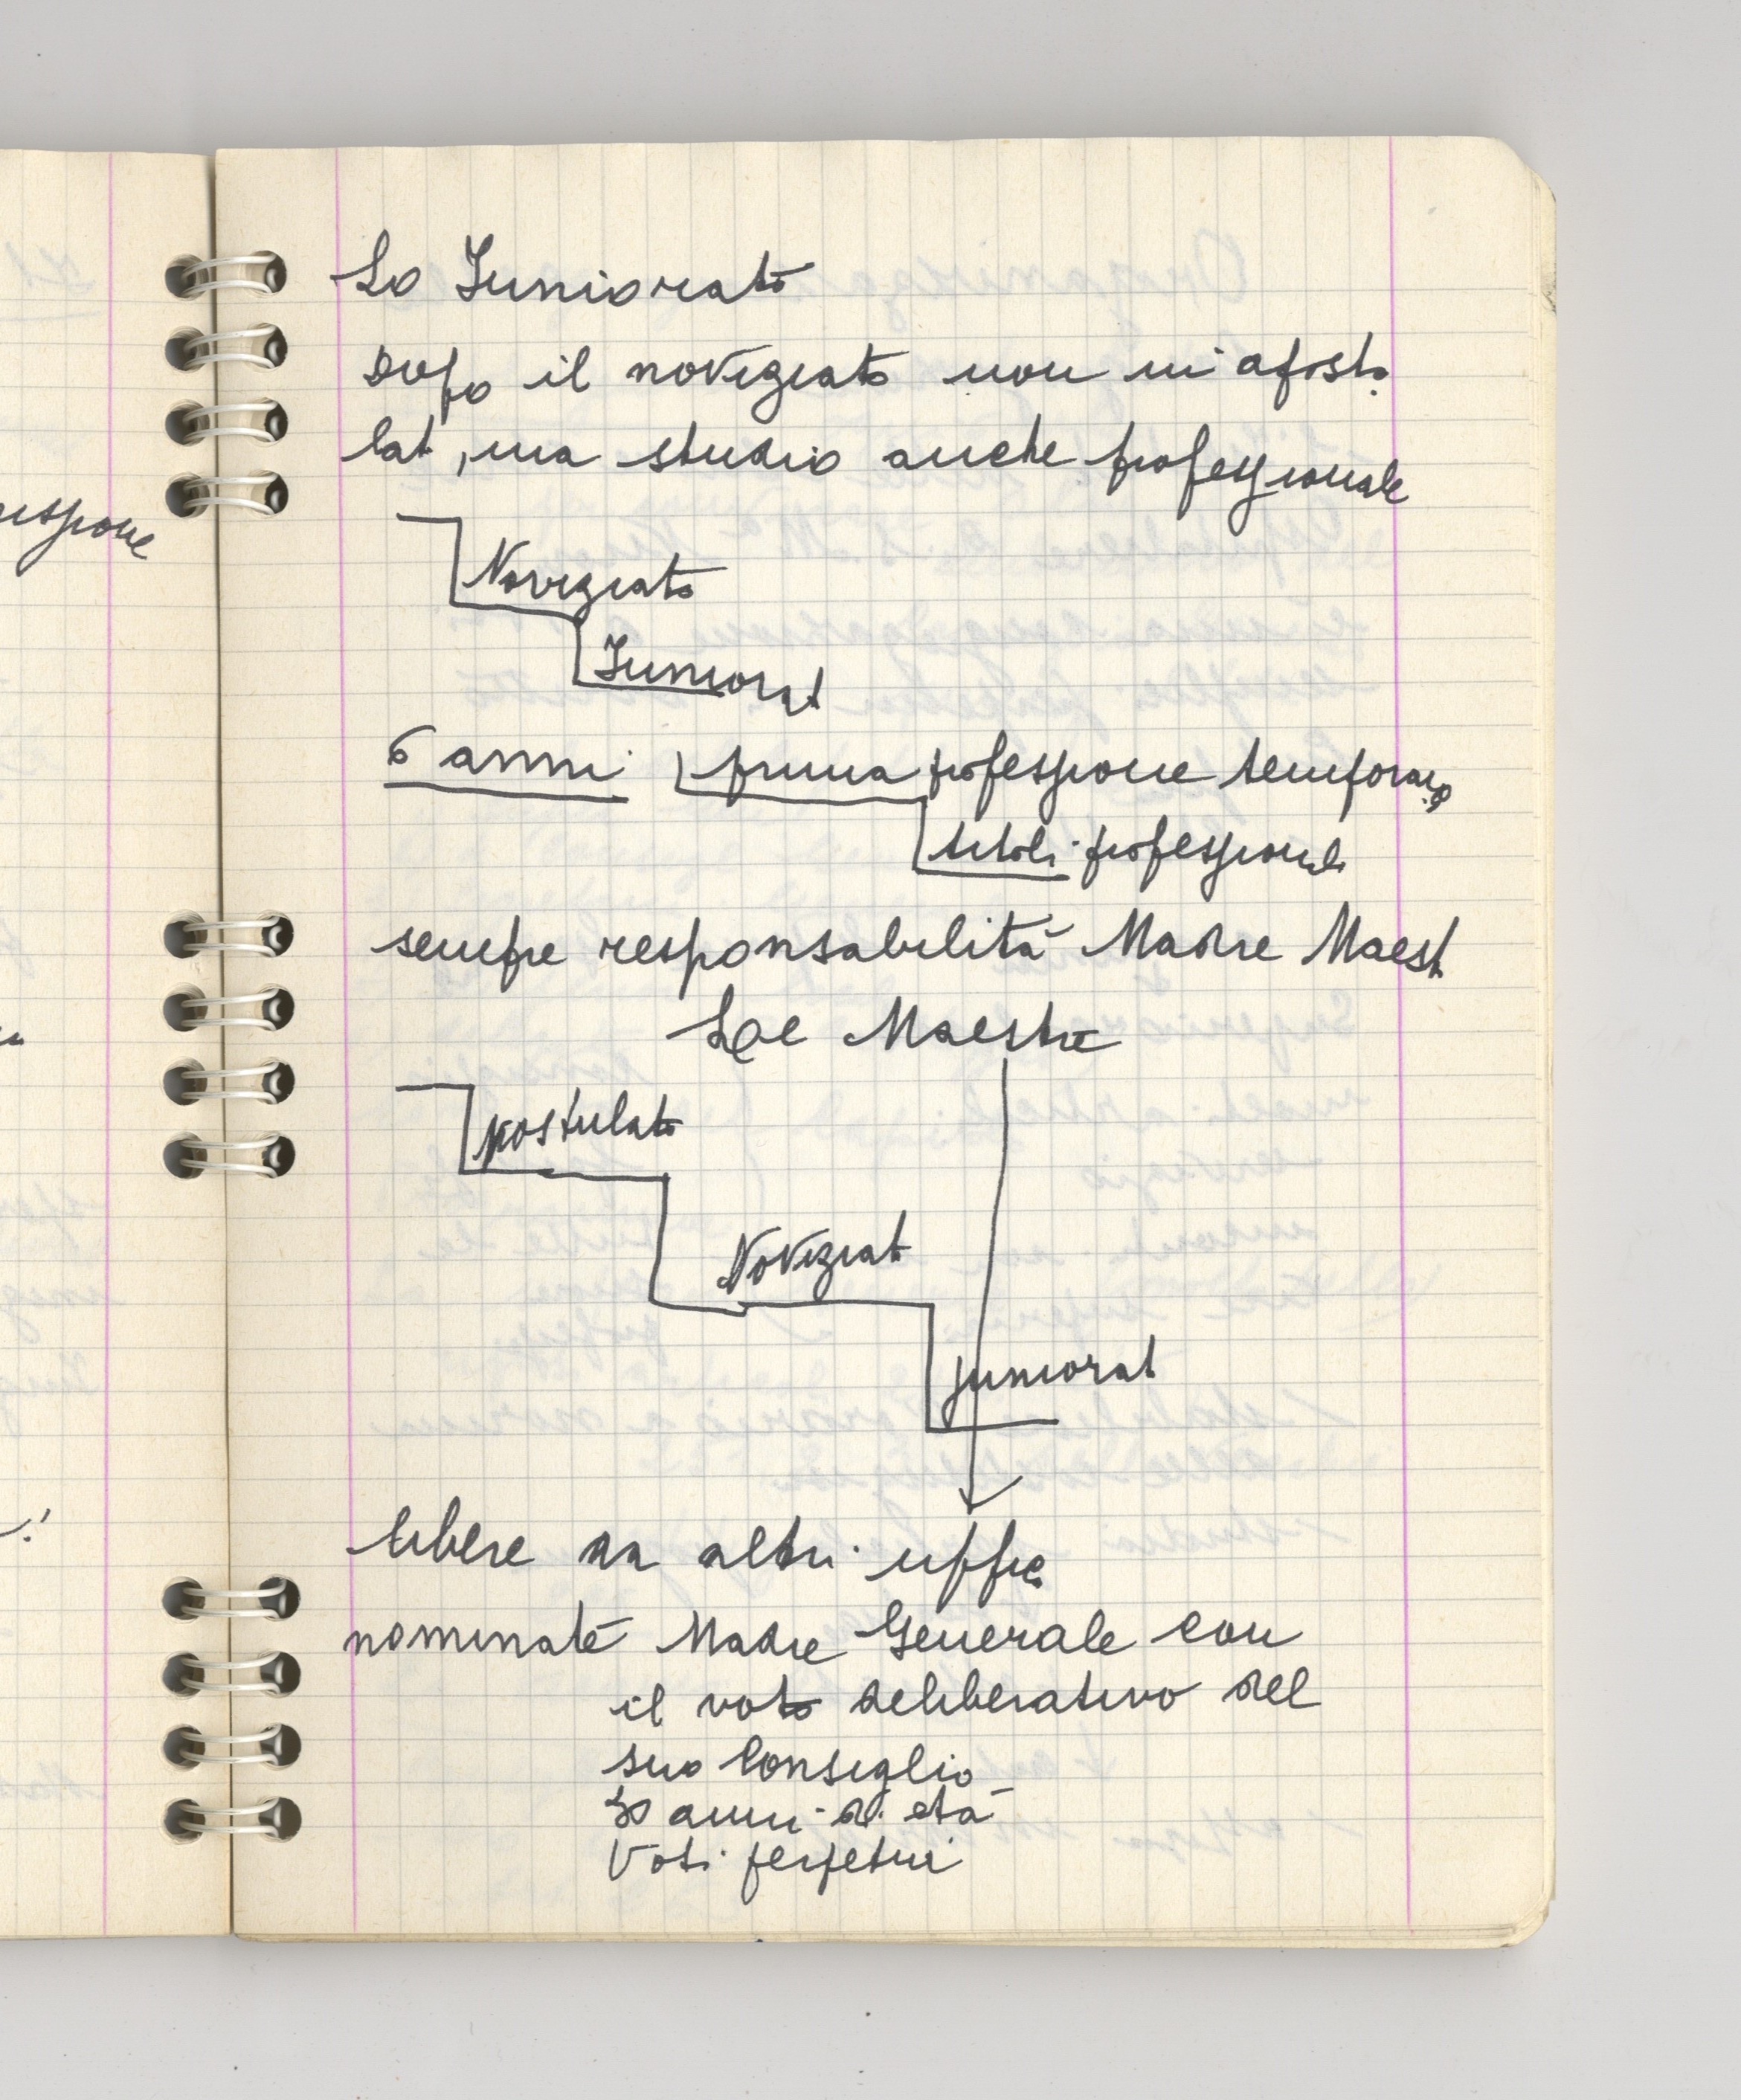 Lo Juniorato
dopo il noviziato non in aposto
lat, ma studio anche professionale
Noviziato
Juniorat
6 anni prima professione temporan
titoli professionali
sempre responsabilità Madre Maest
Le Maestre
postulato
Noviziat
juniorat
libere da altri uffic
nominate Madre Generale con
il voto deliberativo del
suo Consiglio
30 anni di età
Voti perpetui